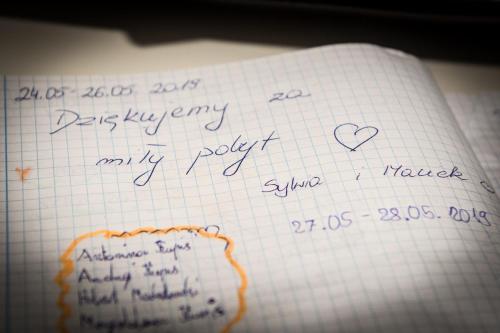 24.05-26.05. 2019
Dziękujemy za
miły pobyt
Sylwia i Marek
27.05 - 28.05. 2019
Antonina
Andrzej
Robert
Magdalena